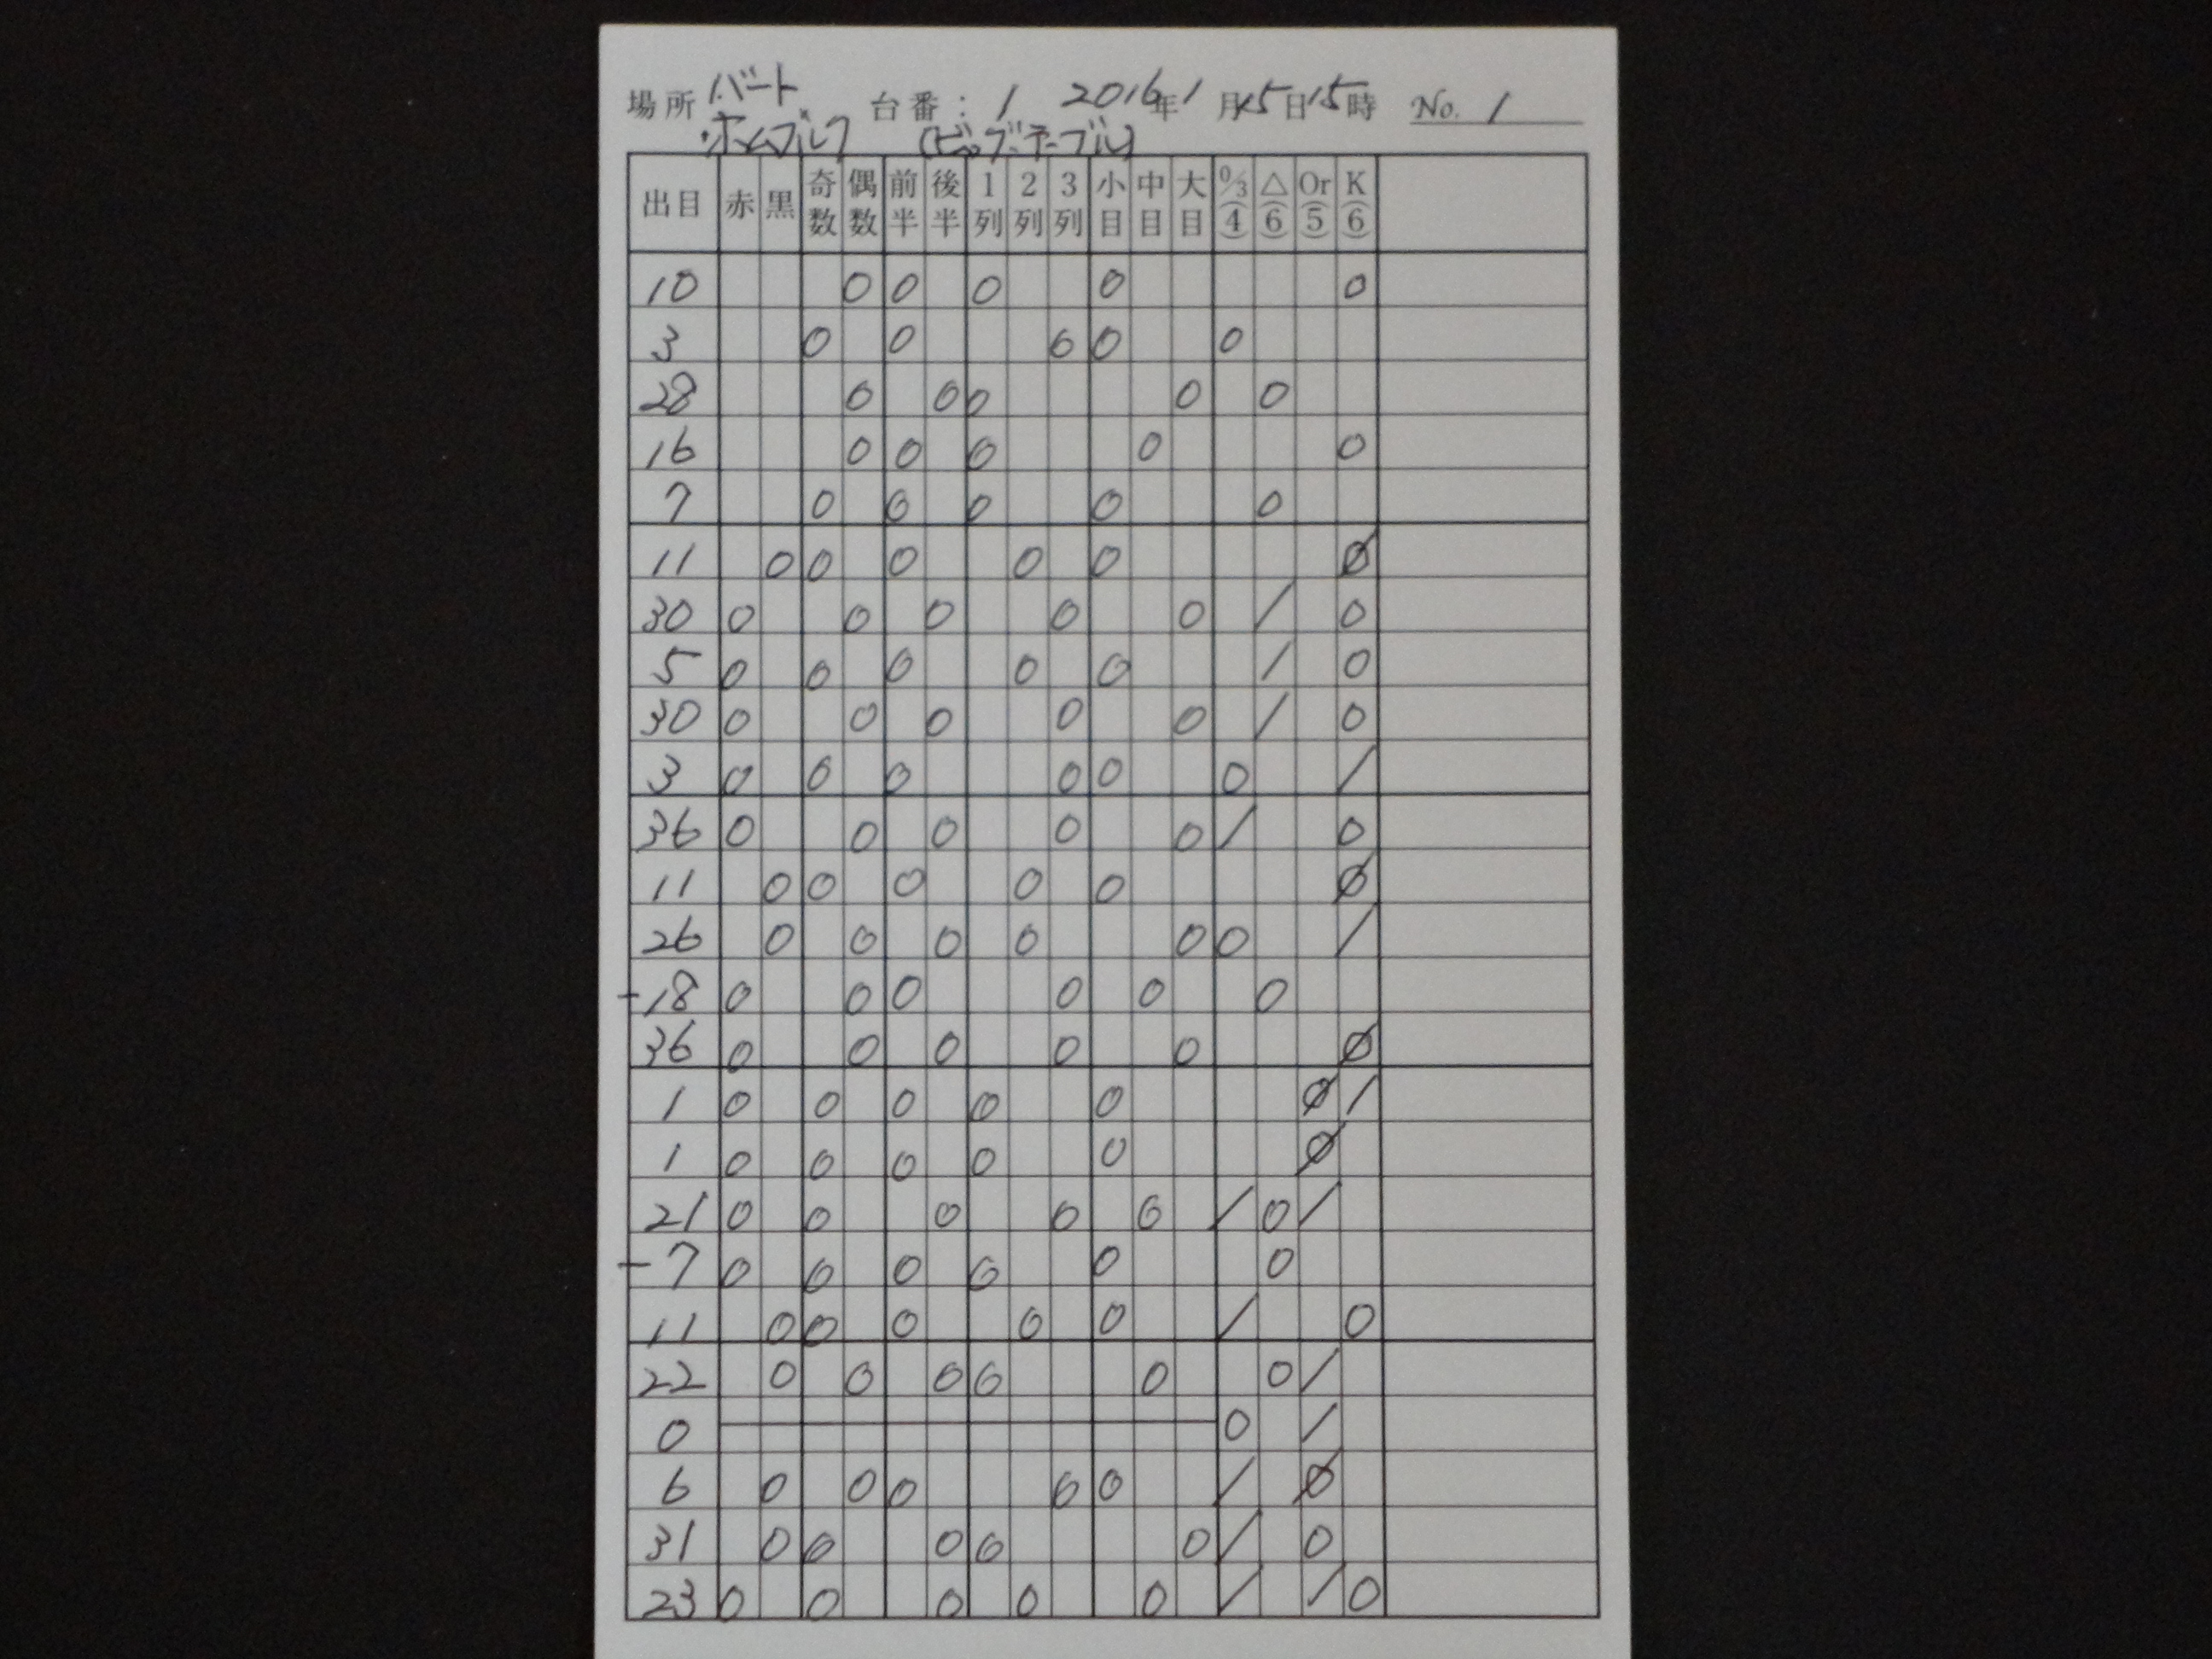 場所 バート 台番: 1 2016年1月15日15時 No. 1
ホムブルク (ビッグテーブル)
出目 赤 黒 奇数 偶数 前半 後半 1列 2列 3列 小目 中目 大目 0/3(4) △(6) Or(5) K(6)
10 0 0 0 0 0
3 0 0 0 0 0
28 0 0 0 0 0
16 0 0 0 0 0
7 0 0 0 0 0
11 0 0 0 0 0 Ø
30 0 0 0 0 0 / 0
5 0 0 0 0 0 / 0
30 0 0 0 0 0 / 0
3 0 0 0 0 0 0 /
36 0 0 0 0 0 / 0
11 0 0 0 0 0 Ø
26 0 0 0 0 0 0 /
-18 0 0 0 0 0 0
36 0 0 0 0 0 Ø
1 0 0 0 0 0 Ø /
1 0 0 0 0 0 Ø
21 0 0 0 0 0 / 0 /
-7 0 0 0 0 0 0
11 0 0 0 0 0 / 0
22 0 0 0 0 0 0 /
0 0 /
6 0 0 0 0 0 / Ø
31 0 0 0 0 0 / 0
23 0 0 0 0 0 / / 0